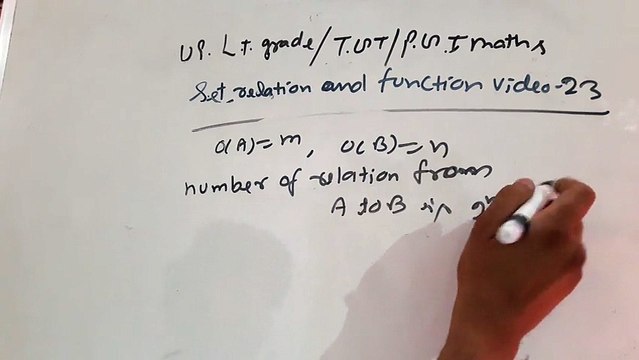 UP. L T. grade/T.G.T/P.G.T maths
Set, relation and function video-23
O(A)=m, O(B)=n
number of relation from
A to B is